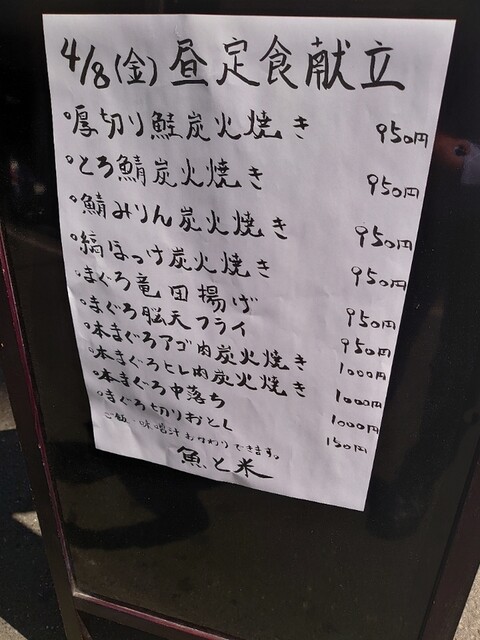 4/8(金) 昼定食献立
厚切り鮭炭火焼き 950円
とろ鯖炭火焼き 950円
鯖みりん炭火焼き 950円
縞ほっけ炭火焼き 950円
まぐろ竜田揚げ 950円
まぐろ脳天フライ 950円
本まぐろアゴ肉炭火焼き 1000円
本まぐろヒレ肉炭火焼き 1000円
本まぐろ中落ち 1000円
まぐろ切りおとし 150円
ご飯・味噌汁おかわりできます。
魚と米